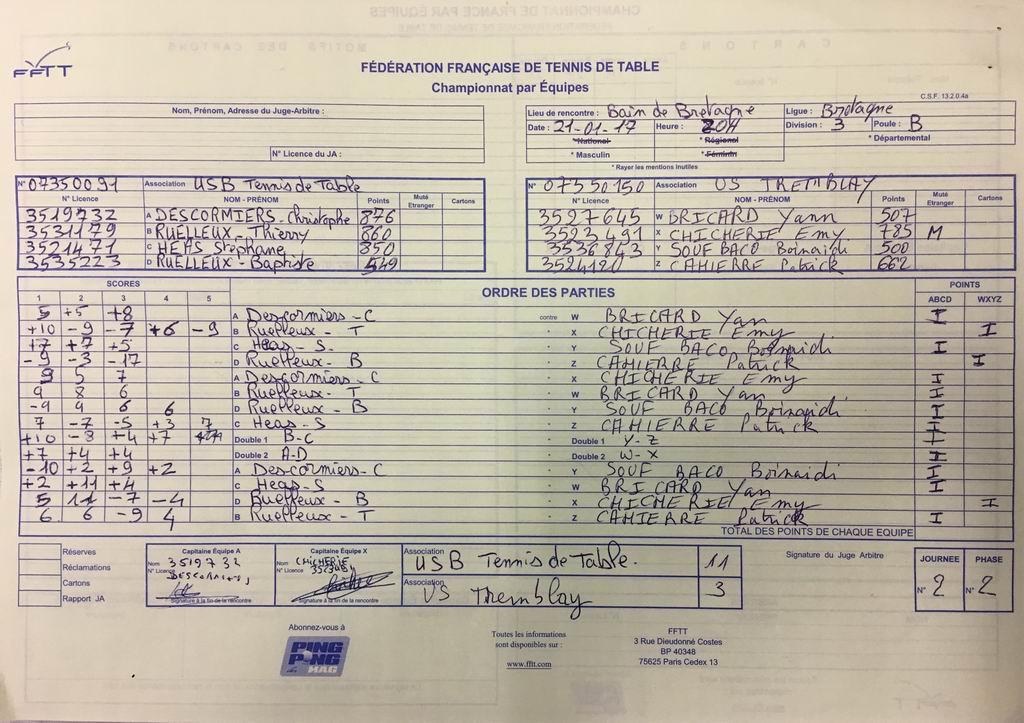 FFTT
FÉDÉRATION FRANÇAISE DE TENNIS DE TABLE
Championnat par Équipes
C.S.F. 13.2.0.4a
Nom, Prénom, Adresse du Juge-Arbitre :
N° Licence du JA :
Lieu de rencontre : Bain de Bretagne Ligue : Bretagne
Date : 21-01-17 Heure : 20H Division : 3 Poule : B
* National * Régional * Départemental
* Masculin * Féminin
* Rayer les mentions inutiles
N° 07350091 Association USB Tennis de Table
N° Licence NOM - PRÉNOM Points Muté Etranger Cartons
3519732 A DESCORMIERS - Christophe 876
3531179 B RUELLEUX - Thierry 860
3521471 C HEAS Stéphane 850
3535223 D RUELLEUX - Baptiste 549
N° 07350150 Association US TREMBLAY
N° Licence NOM - PRÉNOM Points Muté Etranger Cartons
3527645 W BRICARD Yann 507
3523491 X CHICHERIE Emy 785 M
3536843 Y SOUF BACO Boinaidi 500
3524120 Z CAHIERRE Patrick 662
SCORES ORDRE DES PARTIES POINTS
1 2 3 4 5 ABCD WXYZ
5 +5 +8 A Descormiers - C contre W BRICARD Yan I
+10 -9 -7 +6 -9 B Ruelleux - T X CHICHERIE Emy I
+7 +7 +5 C Heas - S Y SOUF BACO Boinaidi I
-9 -3 -17 D Ruelleux - B Z CAHIERRE Patrick I
9 5 7 A Descormiers - C X CHICHERIE Emy I
9 8 6 B Ruelleux - T W BRICARD Yan I
-9 9 6 6 D Ruelleux - B Y SOUF BACO Boinaidi I
7 -7 -5 +3 7 C Heas - S Z CAHIERRE Patrick I
+10 -8 +4 +7 Double 1 B-C Double 1 Y-Z I
+7 +4 +4 Double 2 A-D Double 2 W-X I
-10 +2 +9 +2 A Descormiers - C Y SOUF BACO Boinaidi I
+2 +11 +4 C Heas - S W BRICARD Yan I
5 11 -7 -4 D Ruelleux - B X CHICHERIE Emy I
6 6 -9 4 B Ruelleux - T Z CAHIERRE Patrick I
TOTAL DES POINTS DE CHAQUE EQUIPE
Réserves
Réclamations
Cartons
Rapport JA
Capitaine Équipe A
Nom 3519732
N° Licence DESCORMIERS
Signature à la fin de la rencontre
Capitaine Équipe X
Nom CHICHERIE
N° Licence
Signature à la fin de la rencontre
Association USB Tennis de Table. 11
Association US Tremblay 3
Signature du Juge Arbitre
JOURNEE PHASE
N° 2 N° 2
Abonnez-vous à
PING PONG MAG
Toutes les informations
sont disponibles sur :
www.fftt.com
FFTT
3 Rue Dieudonné Costes
BP 40348
75625 Paris Cedex 13